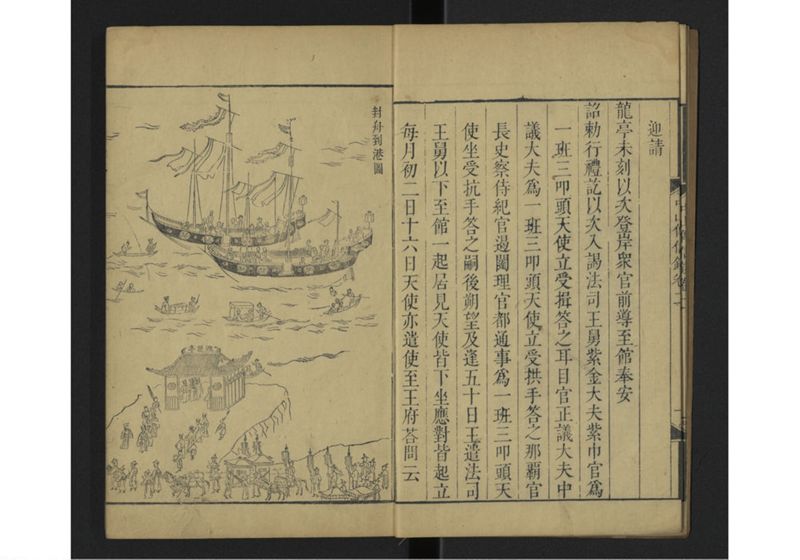 迎請
龍亭未刻以次登岸衆官前導至館奉安
詔勅行禮訖以次入謁法司王舅紫金大夫紫巾官爲
一班三叩頭天使立受揖答之耳目官正議大夫中
議大夫爲一班三叩頭天使立受拱手答之那覇官
長史察侍紀官遏闥理官都通事爲一班三叩頭天
使坐受抗手答之嗣後朔望及逢五十日王遣法司
王舅以下至館一起居見天使皆下坐應對皆起立
每月初二日十六日天使亦遣使至王府荅問云
封舟到港圖